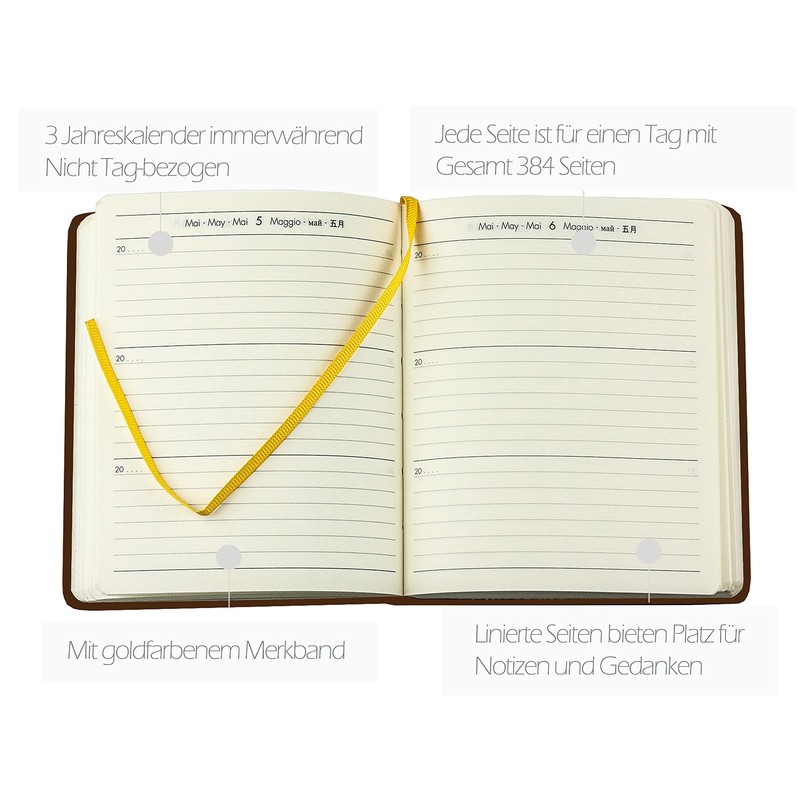 3 Jahreskalender immerwährend
Nicht Tag-bezogen
Jede Seite ist für einen Tag mit
Gesamt 384 Seiten
Mai · May · Mai 5 Maggio · май · 五月
20 ....
20 ....
20 ....
Mai · May · Mai 6 Maggio · май · 五月
20 ....
20 ....
20 ....
Mit goldfarbenem Merkband
Linierte Seiten bieten Platz für
Notizen und Gedanken